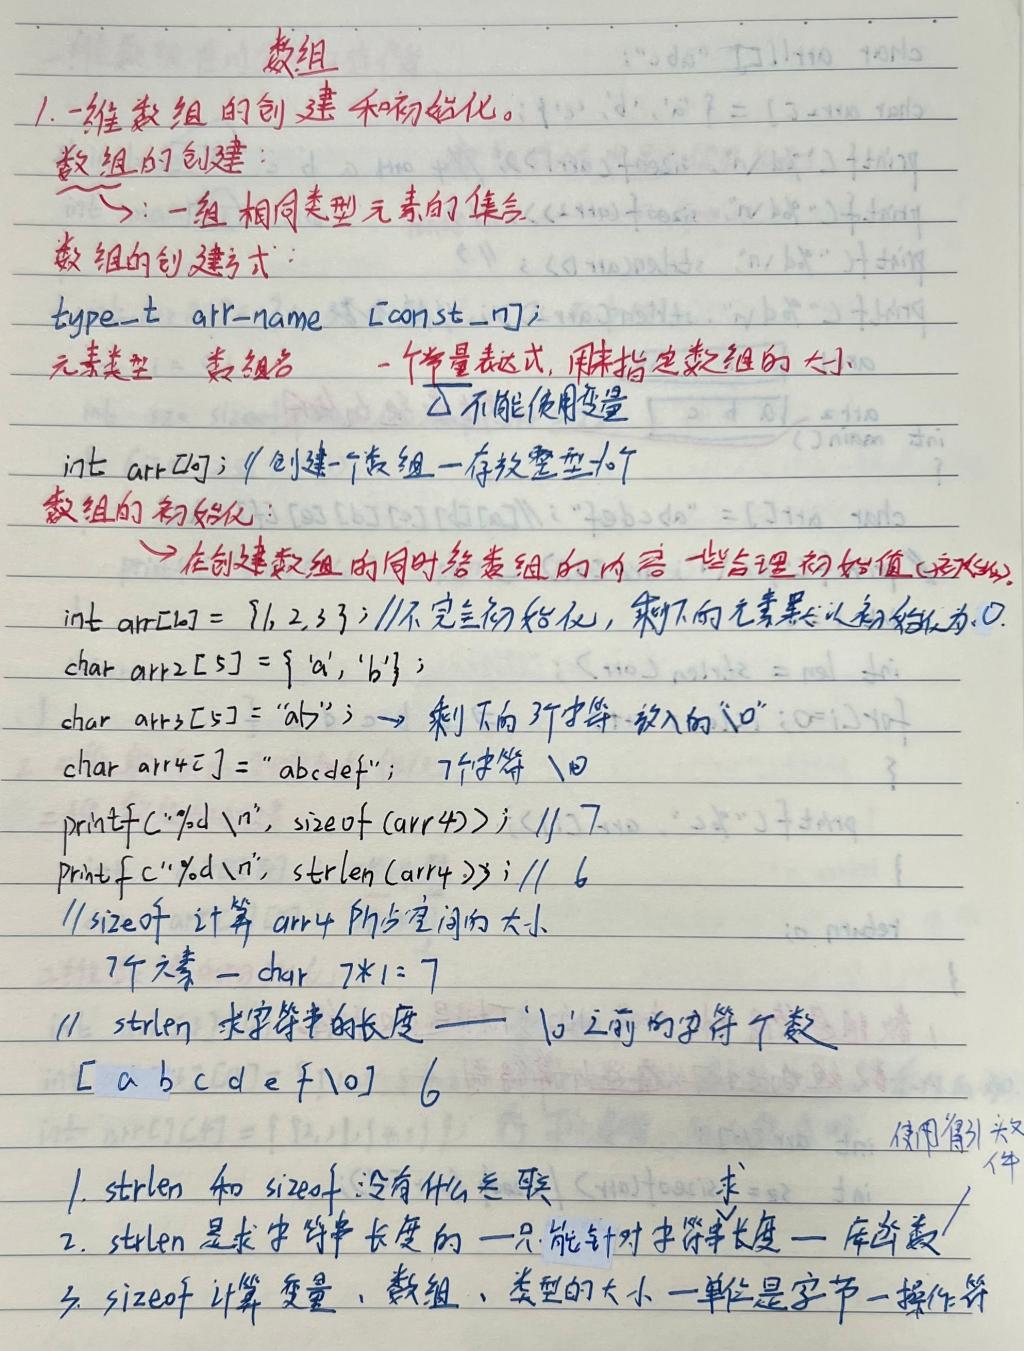 数组
1. 一维数组的创建和初始化。
数组的创建:
↳: 一组相同类型元素的集合
数组的创建方式:
type_t arr_name [const_n];
元素类型 数组名 一个常量表达式,用来指定数组的大小
△不能使用变量
int arr[10]; // 创建一个数组—存放整型—10个
数组的初始化:
↳在创建数组的同时给数组的内容一些合理初始值(初始化).
int arr[10] = {1, 2, 3}; //不完全初始化, 剩下的元素默认初始化为0.
char arr2[5] = {'a', 'b'};
char arr3[5] = "ab"; → 剩下的3个字符放入的"\0"
char arr4[] = "abcdef"; 7个字符 \0
printf("%d\n", sizeof(arr4)); // 7
printf("%d\n", strlen(arr4)); // 6
//sizeof 计算 arr4 所占空间的大小
7个元素 — char 7*1=7
// strlen 求字符串的长度 —— '\0'之前的字符个数
[a b c d e f \0] 6
使用得引头文件
1. strlen 和 sizeof 没有什么关联
2. strlen 是求字符串长度的 — 只能针对字符串求长度 — 库函数
3. sizeof 计算变量、数组、类型的大小 — 单位是字节 — 操作符